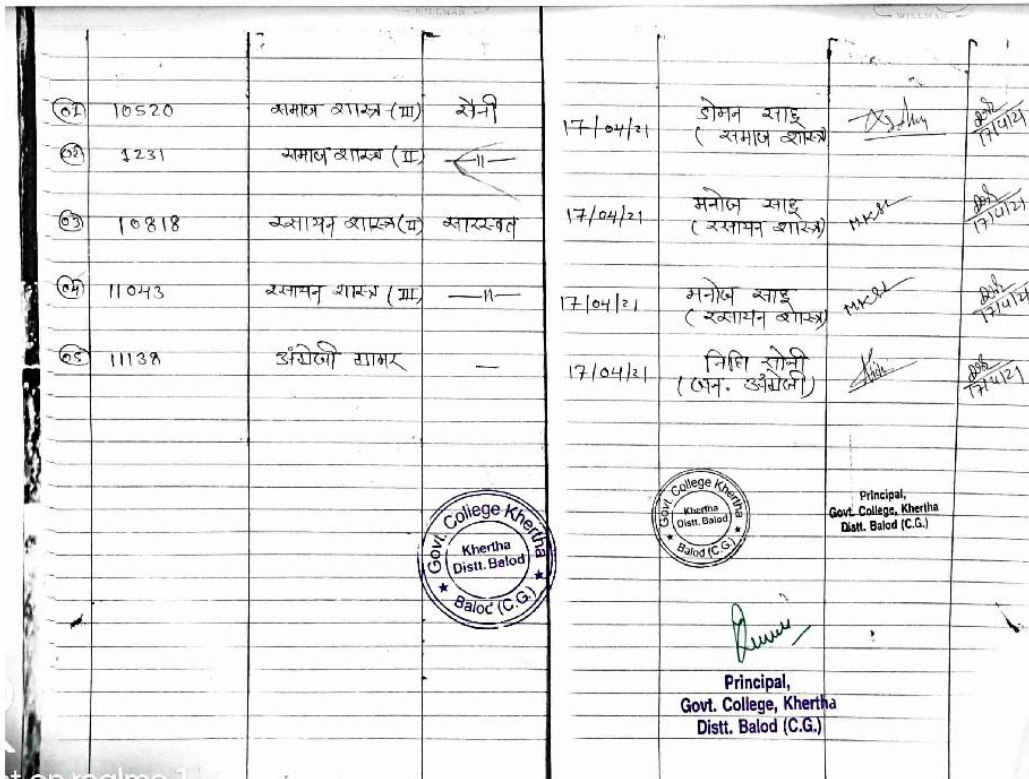 WILLMAN
WILLMAN
01 10520 समाज शास्त्र-(III) सैनी 17/04/21 डोमन साहू
( समाज शास्त्र) 17/4/21
02 1231 समाज शास्त्र (II) —11—
03 10818 रसायन शास्त्र(II) सारस्वत 17/04/21 मनोज साहू M.K.
( रसायन शास्त्र) 17/4/21
04 11043 रसायन शास्त्र (III) —11— 17/04/21 मनोज साहू M.K.
( रसायन शास्त्र) 17/4/21
05 11138 अंग्रेजी ग्रामर — 17/04/21 निधि सोनी
(अन. अंग्रेजी) 17/4/21
Govt. College Khertha
Khertha
Distt. Balod
Balod (C.G.)
Govt. College Khertha
Khertha
Distt. Balod
Balod (C.G.)
Principal,
Govt. College, Khertha
Distt. Balod (C.G.)
Principal,
Govt. College, Khertha
Distt. Balod (C.G.)
t on realme 1